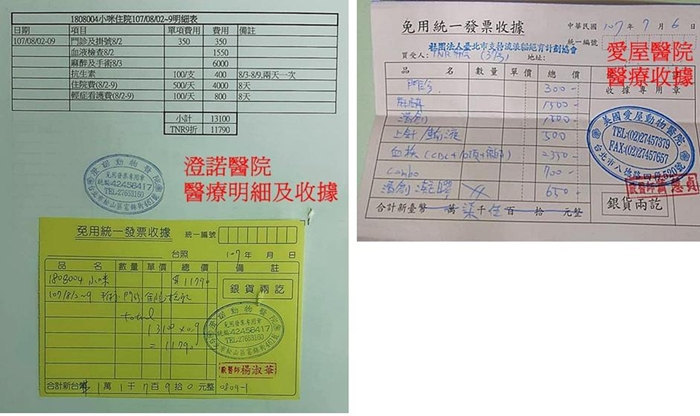 1808004小咪住院107/08/02~9明細表
日期 項目 單項費用 費用 備註
107/08/02-09 門診及掛號8/2 350 350
血液檢查8/2
麻醉及手術8/3 6000
抗生素 100/支 400 8/3-8/9,兩天一次
住院費(8/2-9) 500/天 4000 8天
輕症看護費(8/2-9) 100/天 800 8天
小計 13100
TNR9折 11790
澄諾醫院
醫療明細及收據
動物醫院
免用發票專用章
統編:42456417
電話:27663160
免用統一發票收據 統一編號
台照 107年 月 日
品名 數量 單價 總價 備註
1808004 小咪 $11790
銀貨兩訖
107/8/2~9
total
13100 x0.9
=11790
動物醫院
免用發票專用章
統編:42456417
電話:27663160
獸醫師 楊淑華
合計新台幣 1萬1千7百9拾0元整 0809-1
免用統一發票收據 中華民國107年7月6日
統一編號
買受人: 地址:
愛屋醫院
醫療收據
品名 數量 單價 總價 備註
門診 300-
收據專用章
1500-
1500-
上針 輸液 500
血檢 2350-
Combo 700-
650-
美國愛屋動物醫院
TEL:(02)27457379
FAX:(02)27457657
台北市八德路
銀貨兩訖
合計新臺幣 萬柒千伍百 拾 元整